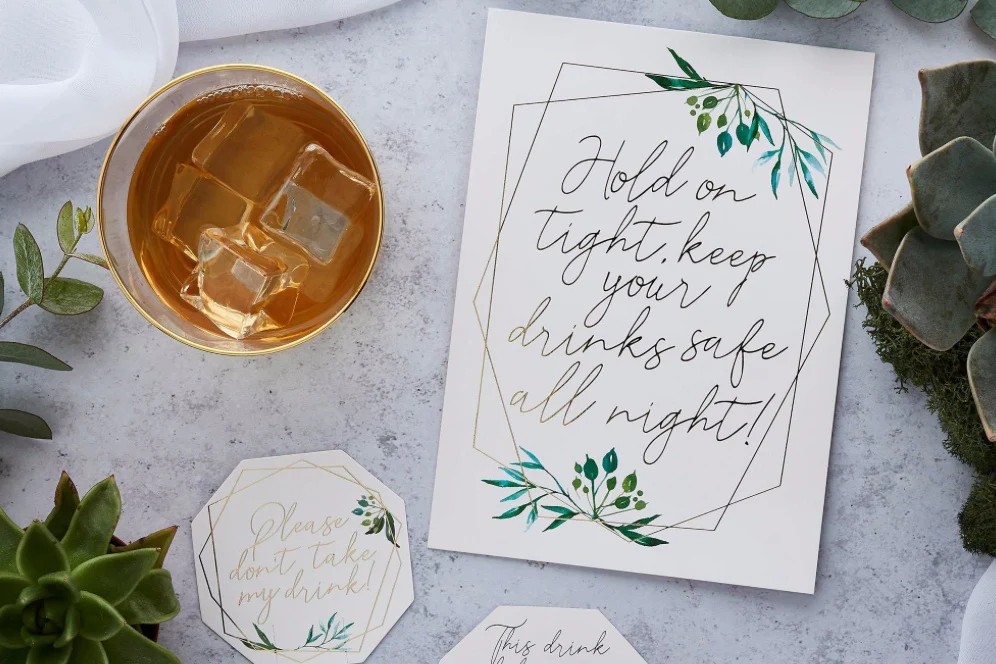 Hold on
tight, keep
your
drinks safe
all night!
Please
don't take
my drink!
This drink